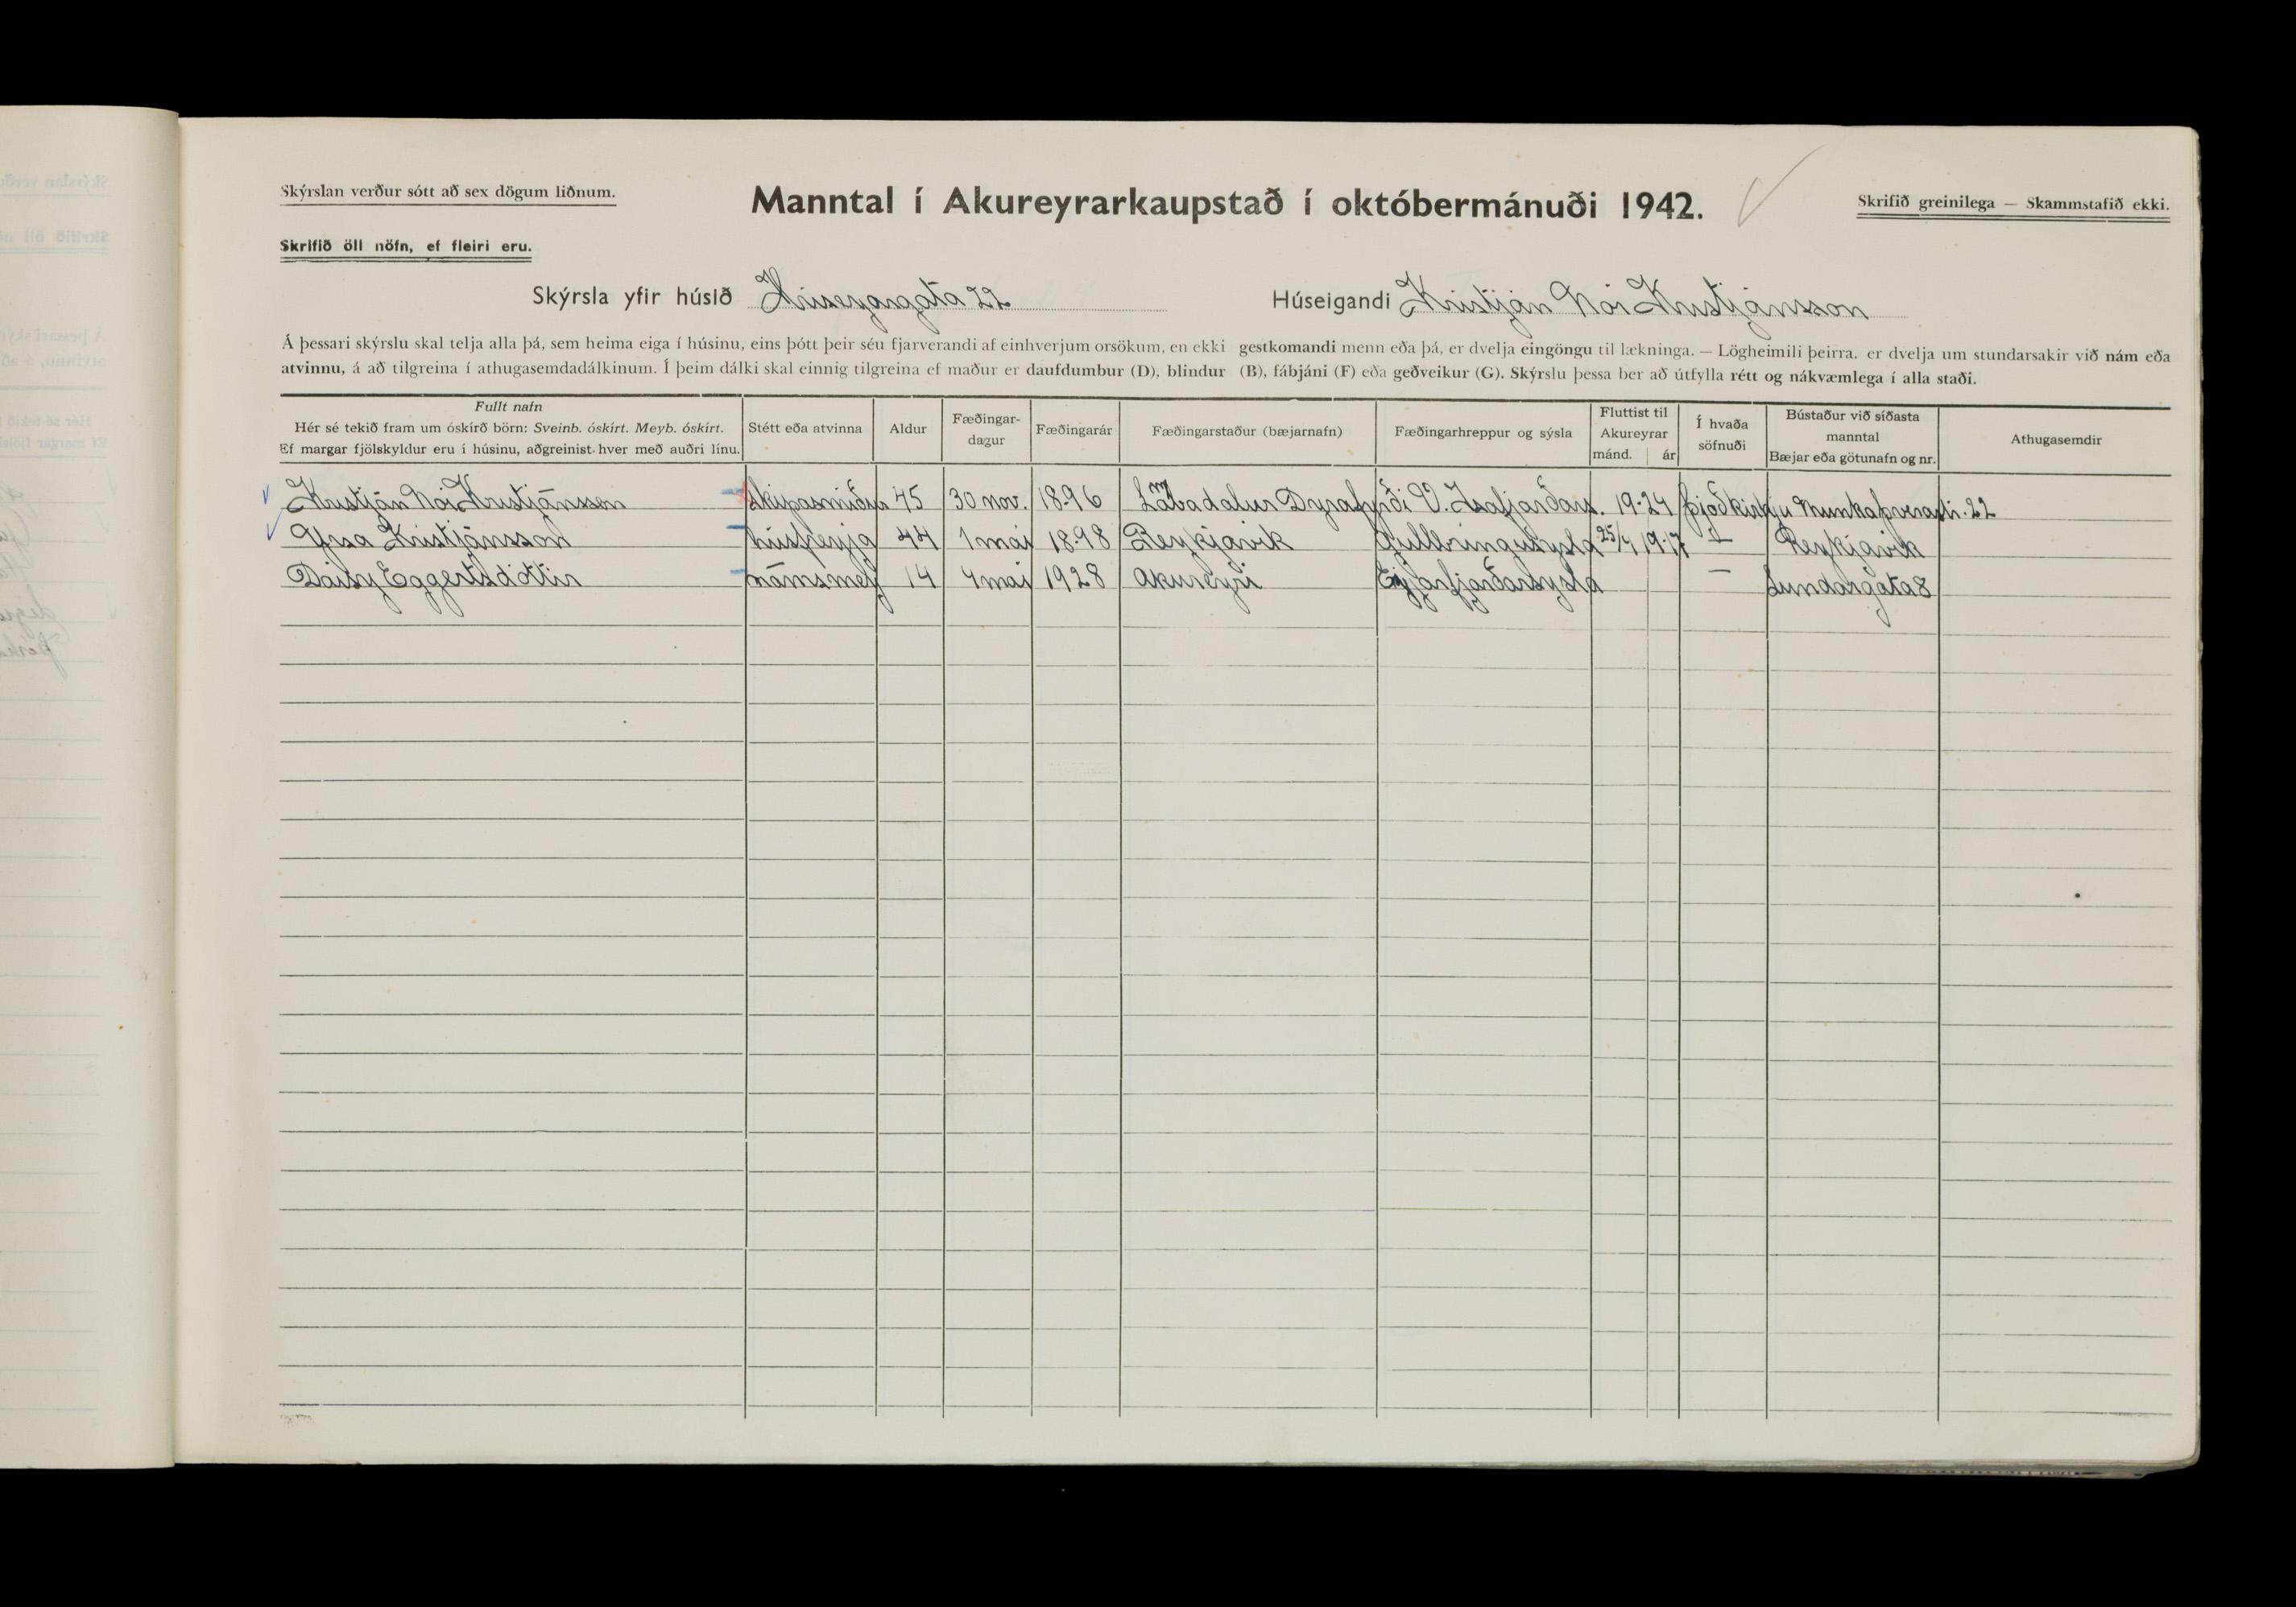 Skýrslan verður sótt að sex dögum liðnum.
Manntal í Akureyrarkaupstað í októbermánuði 1942.
Skrifið greinilega — Skammstafið ekki.
Skrifið öll nöfn, ef fleiri eru.
Skýrsla yfir húsið Híseyargata 22 Húseigandi Kristján Nói Kristjánsson
Á þessari skýrslu skal telja alla þá, sem heima eiga í húsinu, eins þótt þeir séu fjarverandi af einhverjum orsökum, en ekki gestkomandi menn eða þá, er dvelja eingöngu til lækninga. — Lögheimili þeirra, er dvelja um stundarsakir við nám eða
atvinnu, á að tilgreina í athugasemdadálkinum. Í þeim dálki skal einnig tilgreina ef maður er daufdumbur (D), blindur (B), fábjáni (F) eða geðveikur (G). Skýrslu þessa ber að útfylla rétt og nákvæmlega í alla staði.
Fullt nafn
Hér sé tekið fram um óskírð börn: Sveinb. óskírt. Meyb. óskírt.
Ef margar fjölskyldur eru í húsinu, aðgreinist hver með auðri línu.
Stétt eða atvinna
Aldur
Fæðingar-
dagur
Fæðingarár
Fæðingarstaður (bæjarnafn)
Fæðingarhreppur og sýsla
Fluttist til
Akureyrar
mánd. ár
Í hvaða
söfnuði
Bústaður við síðasta
manntal
Bæjar eða götunafn og nr.
Athugasemdir
Kristján Nói Kristjánsson skipasmiður 45 30 nov. 1896 Dyrafyrði V. Isafjarðars. 19-24 þjóðkirkju Munkaþverastr. 22
Yrsa Kristjánsson húsfreyja 44 1 maí 1898 Reykjavik Gullbringusysla 25/4 19-17 Reykjavik
Daisy Eggertsdóttir námsmey 14 4 maí 1928 Akureyri Eyjafjarðarsysla — Lundargata 8